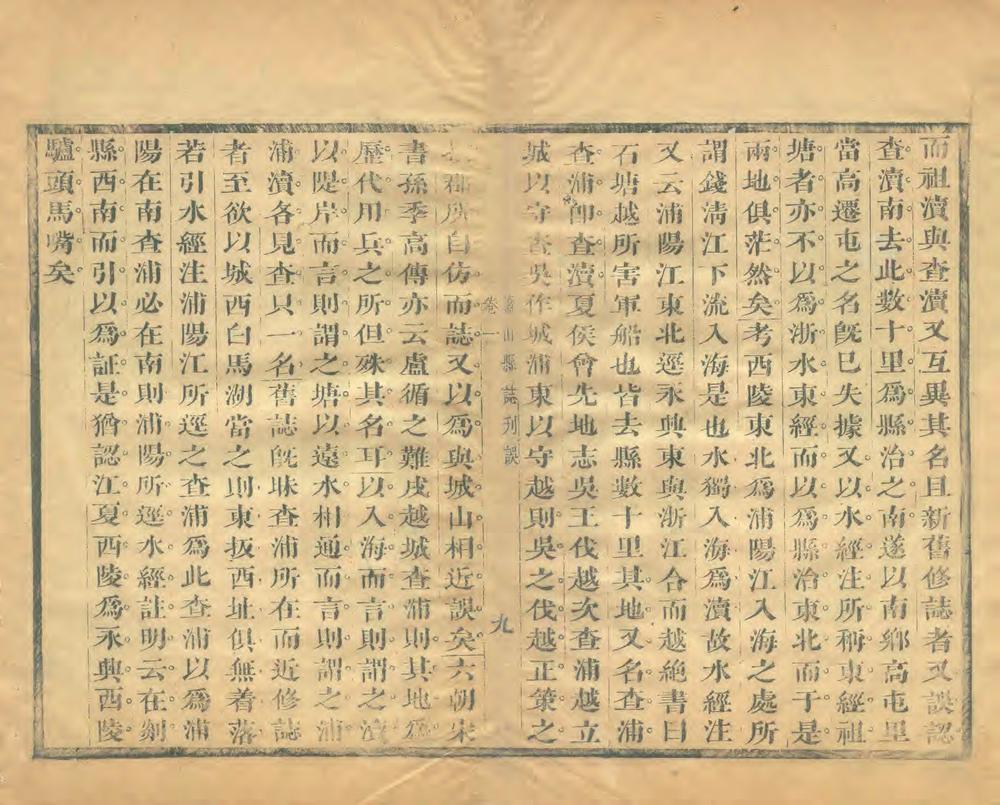 而祖瀆與查瀆又互異其名且新舊修誌者又誤認
查瀆南去此數十里爲縣治之南遂以南鄉高屯里
當高遷屯之名旣已失據又以水經注所稱東經祖
塘者亦不以爲浙水東經而以爲縣治東北而于是
兩地俱茫然矣考西陵東北爲浦陽江入海之處所
謂錢清江下流入海是也水獨入海爲瀆故水經注
又云浦陽江東北逕永興東與浙江合而越絕書曰
石塘越所害軍船也皆去縣數十里其地又名查浦
查浦卽查瀆夏侯曾先地志吳王伐越次查浦越立
城以守查吳作城浦東以守越則吳之伐越正策之
蕭山縣誌刋誤
卷一
九
郡所自仿而誌又以爲與城山相近誤矣六朝宋
書孫季高傳亦云盧循之難戍越城查浦則其地爲
歷代用兵之所但殊其名耳以入海而言則謂之瀆
以隄岸而言則謂之塘以遠水相通而言則謂之浦
浦瀆各見查只一名舊誌旣昧查浦所在而近修誌
者至欲以城西白馬湖當之則東扳西址俱無着落
若引水經注浦陽江所逕之查浦爲此查浦以爲浦
陽在南查浦必在南則浦陽所逕水經註明云在剡
縣西南而引以爲証是猶認江夏西陵爲永興西陵
驢頭馬嘴矣